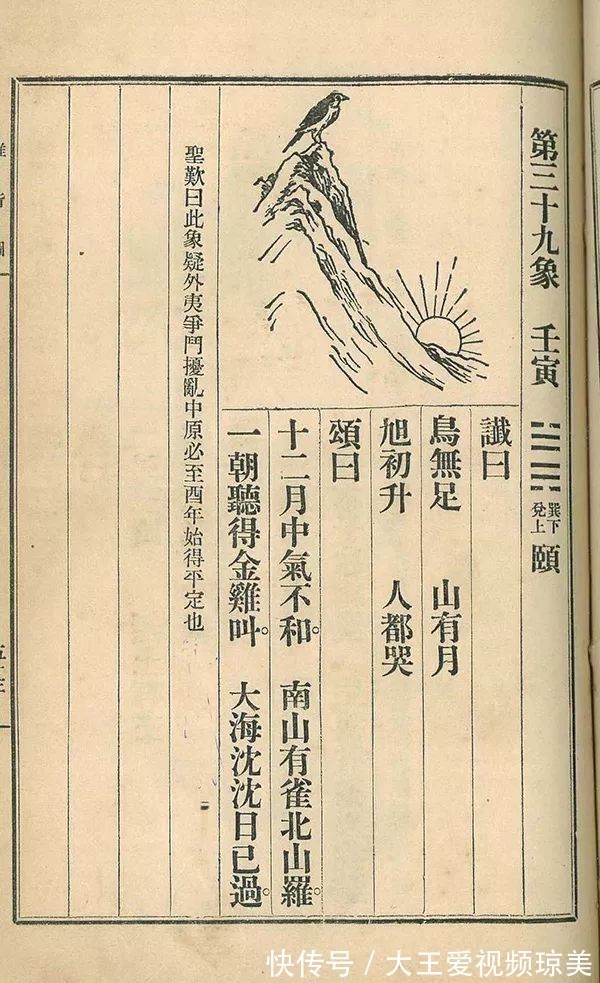 第三十九象 壬寅 巽下 兌上 頤
讖曰
鳥無足 山有月
旭初升 人都哭
頌曰
十二月中氣不和。 南山有雀北山羅。
一朝聽得金雞叫。 大海沈沈日已過。
聖歎曰此象疑外夷爭鬥擾亂中原必至酉年始得平定也
快传号 / 大王爱视频琼美